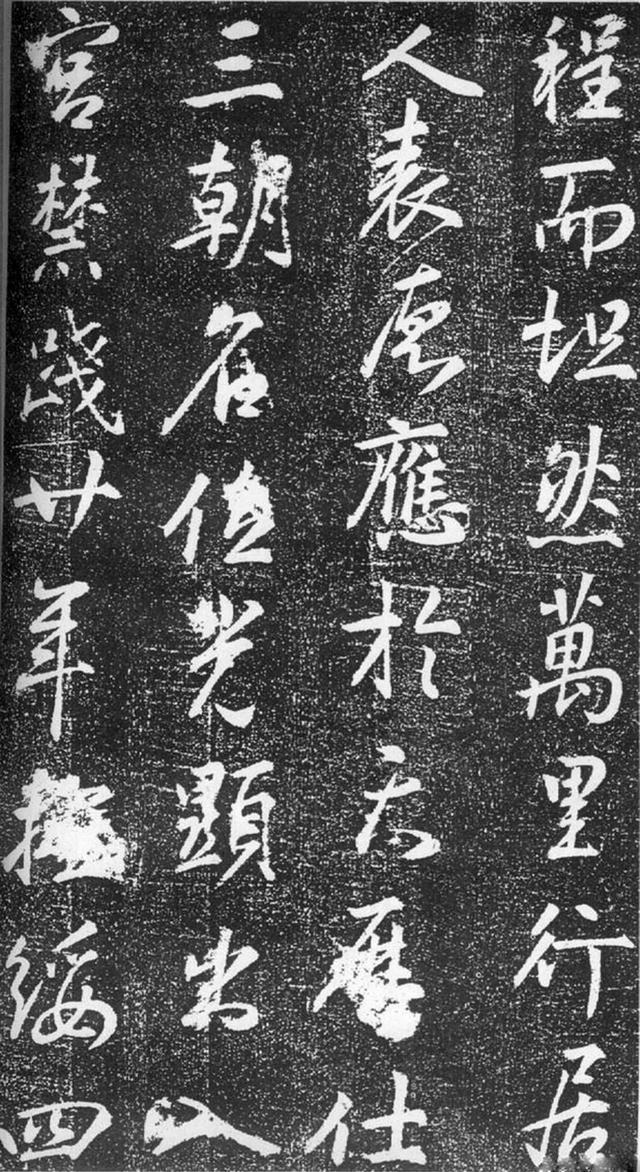 程而坦然萬里行居
人表應於歷仕
三朝名位光顯出入
宮禁踐廿年綬四